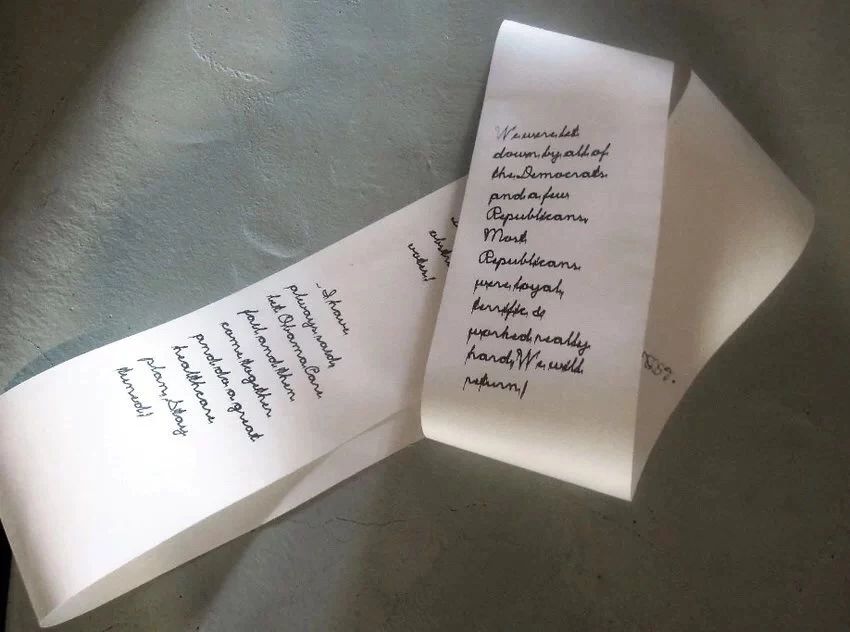 We were let
down by all of
the Democrats
and a few
Republicans.
Most
Republicans
were loyal,
terrific &
worked really
hard. We will
return!
- I have
always said,
let ObamaCare
fail and then
come together
and do a great
healthcare
plan. Stay
tuned!
votes!